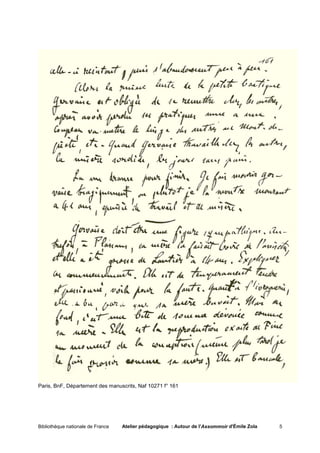 161
celle-ci résistant, puis s'abandonnant peu à peu.
Alors la ruine lente de la petite boutique
Gervaise est obligée de se remettre chez les autres,
après avoir perdu ses pratiques une à une.
Coupeau va mettre le linge des autres au Mont-de-
piété, etc – Quand Gervaise travaille chez les autres,
la misère sordide, les jours sans pain.
Un drame pour finir. Je fais mourir Ger-
vaise tragiquement, ou plutôt je la montre mourant
à 41 ans, épuisée de travail et de misère.
Gervaise doit être une figure sympathique. Au-
à Plassans, sa mère la faisait boire de l'anisette,
et elle a été grosse de Lantier à 14 ans. Expliquer
ces commencements. Elle est de tempérament tendre
et passionné, voilà pour la faute. Quant à l'ivrognerie,
elle a bu, parce que sa mère buvait. Mais au
fond, c'est une bête de somme dévouée comme
sa mère – Elle est la reproduction exacte de Fine
au moment de la conception (même plus tard je
la fais grossir comme sa mère.) Elle est bancale,
Paris, BnF, Département des manuscrits, Naf 10271 f° 161
Bibliothèque nationale de France Atelier pédagogique : Autour de l'Assommoir d'Émile Zola 5